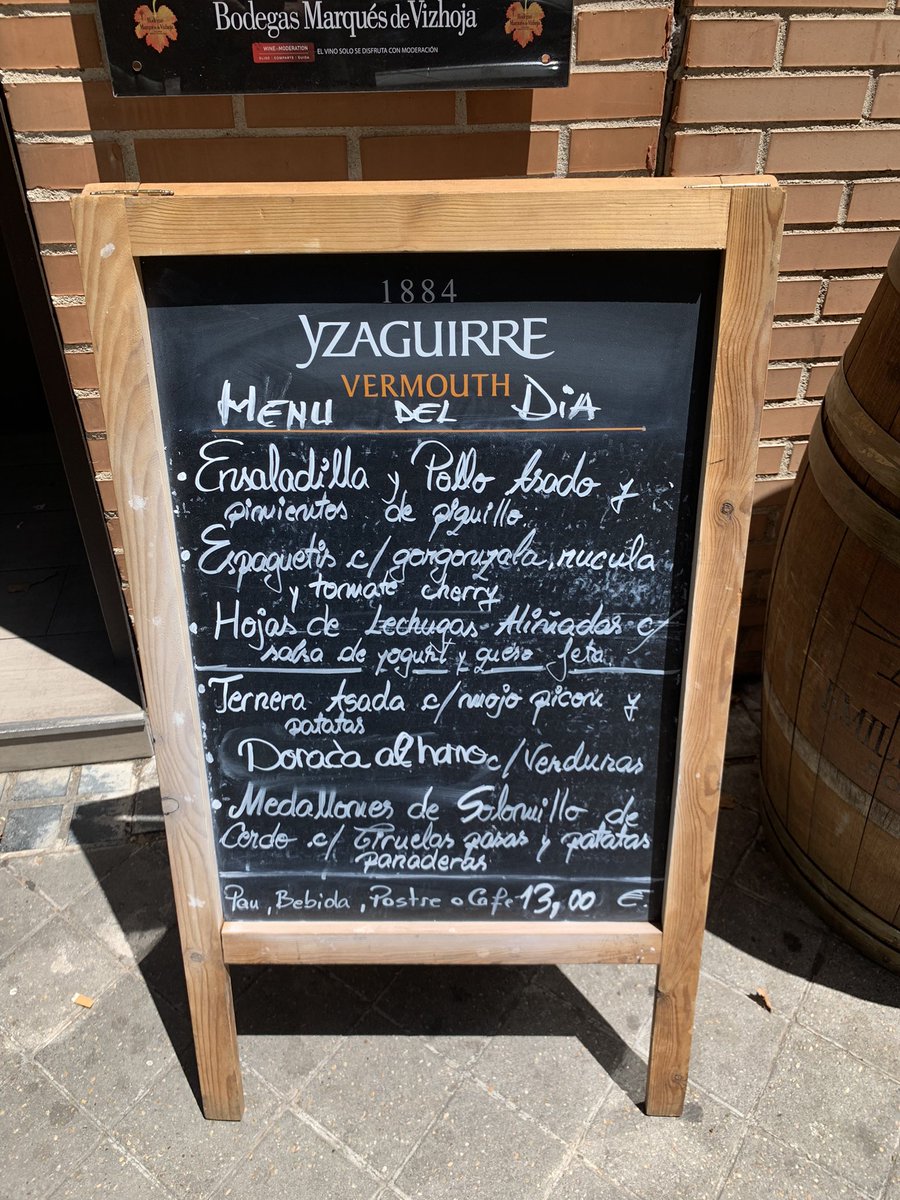 Bodegas Marqués de Vizhoja
WINE in MODERATION
ELIGE · COMPARTE · CUIDA
EL VINO SOLO SE DISFRUTA CON MODERACIÓN
1884
YZAGUIRRE
VERMOUTH
MENU DEL DIA
· Ensaladilla y Pollo Asado y
pimientos de piquillo
· Espaguetis c/ gorgonzola, rucula
y tomate cherry
· Hojas de Lechugas Aliñadas c/
salsa de yogurt y queso feta.
· Ternera Asada c/ mojo picon y
patatas
· Dorada al horno c/ Verduras
· Medallones de Solomillo de
Cerdo c/ Ciruelas pasas y patatas
panaderas
Pan, Bebida, Postre o Café 13,00 €